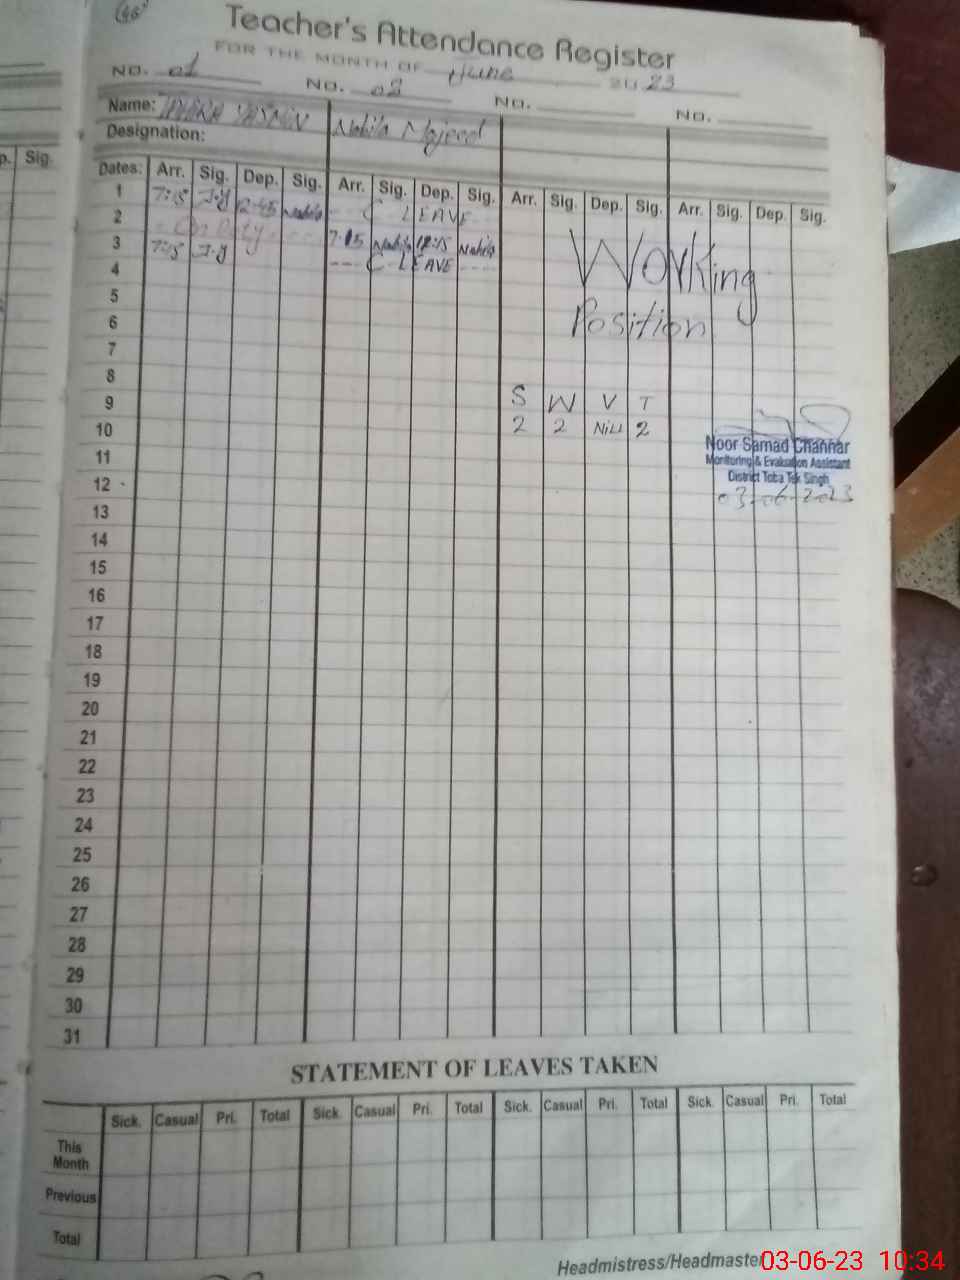 Teacher's Attendance Register
FOR THE MONTH OF June 2023
NO. 01 NO. 02 NO. NO.
Name: YASMIN Nabila Majeed
Designation:
p. Sig.
Dates: Arr. Sig. Dep. Sig. Arr. Sig. Dep. Sig. Arr. Sig. Dep. Sig. Arr. Sig. Dep. Sig.
1 7:15 J.y 12-45 Nabila --- C LEAVE --
2 - On Duty - - - 7:15 Nabila 12:15 Nabila
3 7:15 J.y --- C LEAVE ----
4
5
6
7
8
9
10
11
12
13
14
15
16
17
18
19
20
21
22
23
24
25
26
27
28
29
30
31
Working
Position
S W V T
2 2 Nill 2
Noor Samad Channar
Monitoring & Evaluation Assistant
District Toba Tek Singh
03-06-2023
STATEMENT OF LEAVES TAKEN
Sick. Casual Pri. Total Sick. Casual Pri. Total Sick. Casual Pri. Total Sick. Casual Pri. Total
This Month
Previous
Total
Headmistress/Headmaster
03-06-23 10:34